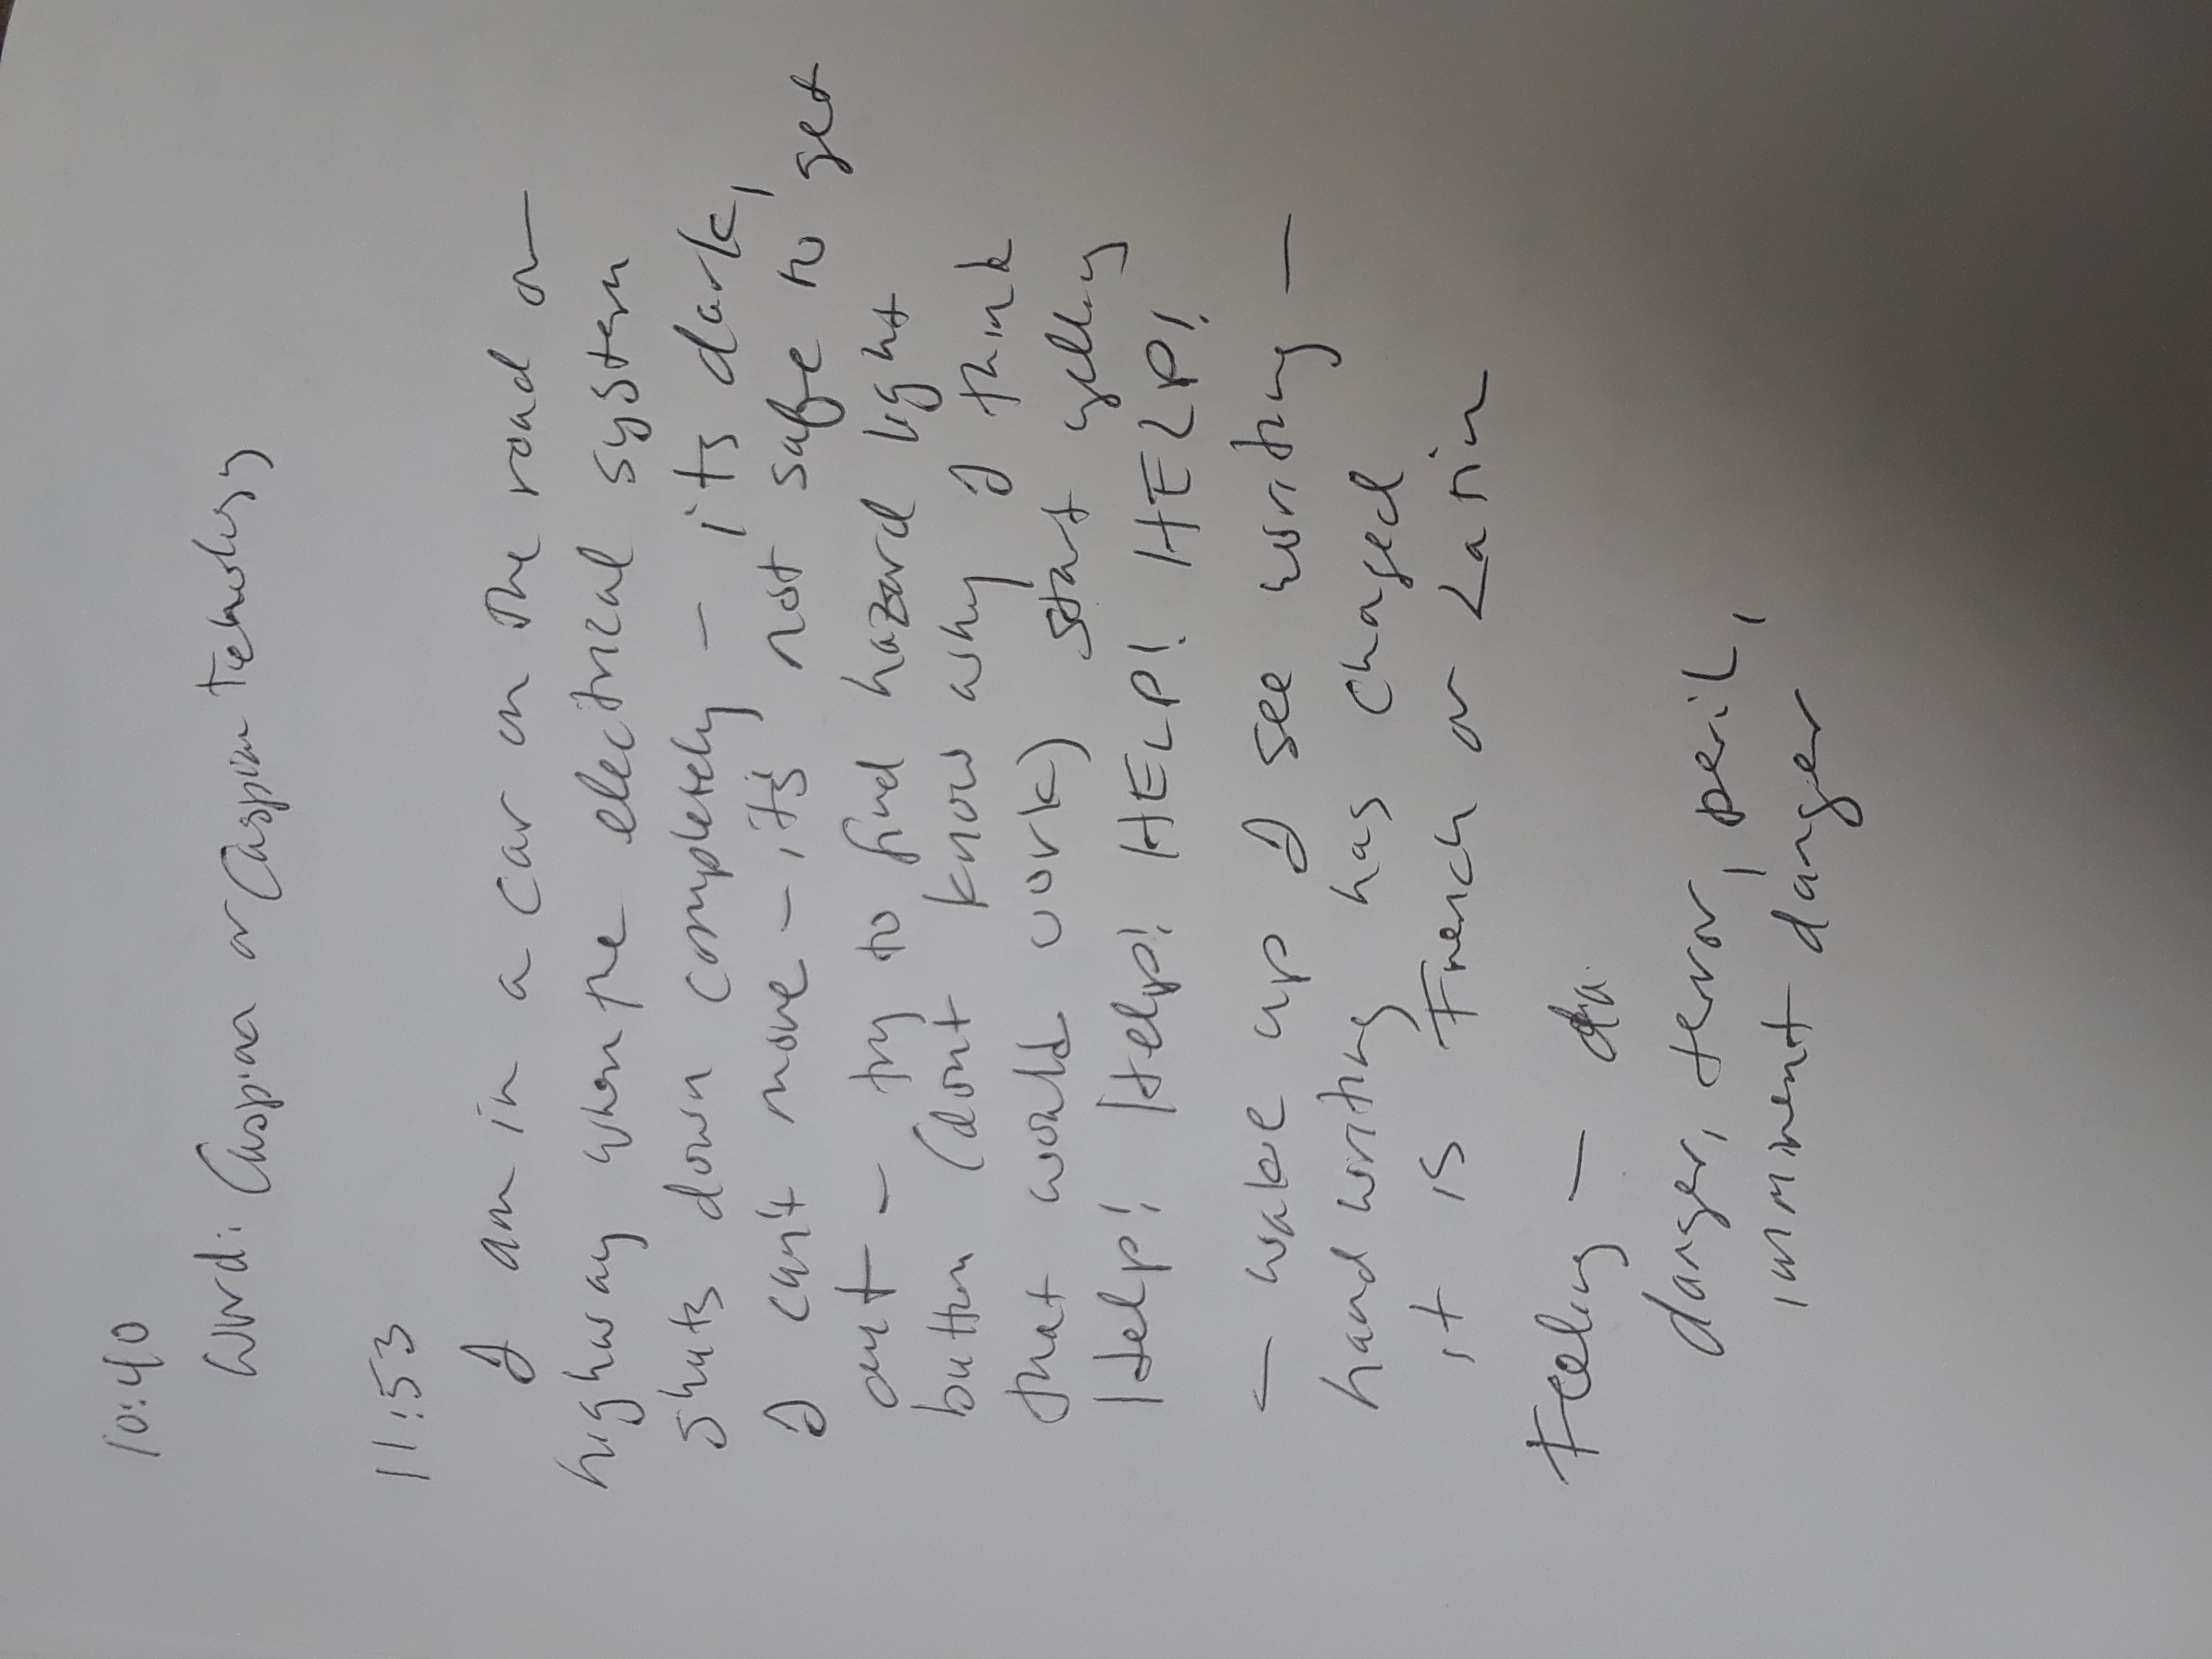 10:40
Word: Caspian or Caspian Technology
11:53
I am in a car on the road or
highway when the electrical system
shuts down completely - its dark,
I can't move - its not safe to get
out - try to find hazard light
button (dont know why I think
that would work) start yelling
Help! Help! HELP! HELP!
- wake up I see writing -
handwriting has changed
it is French or Latin
Feeling -
danger, terror, peril,
imminent danger